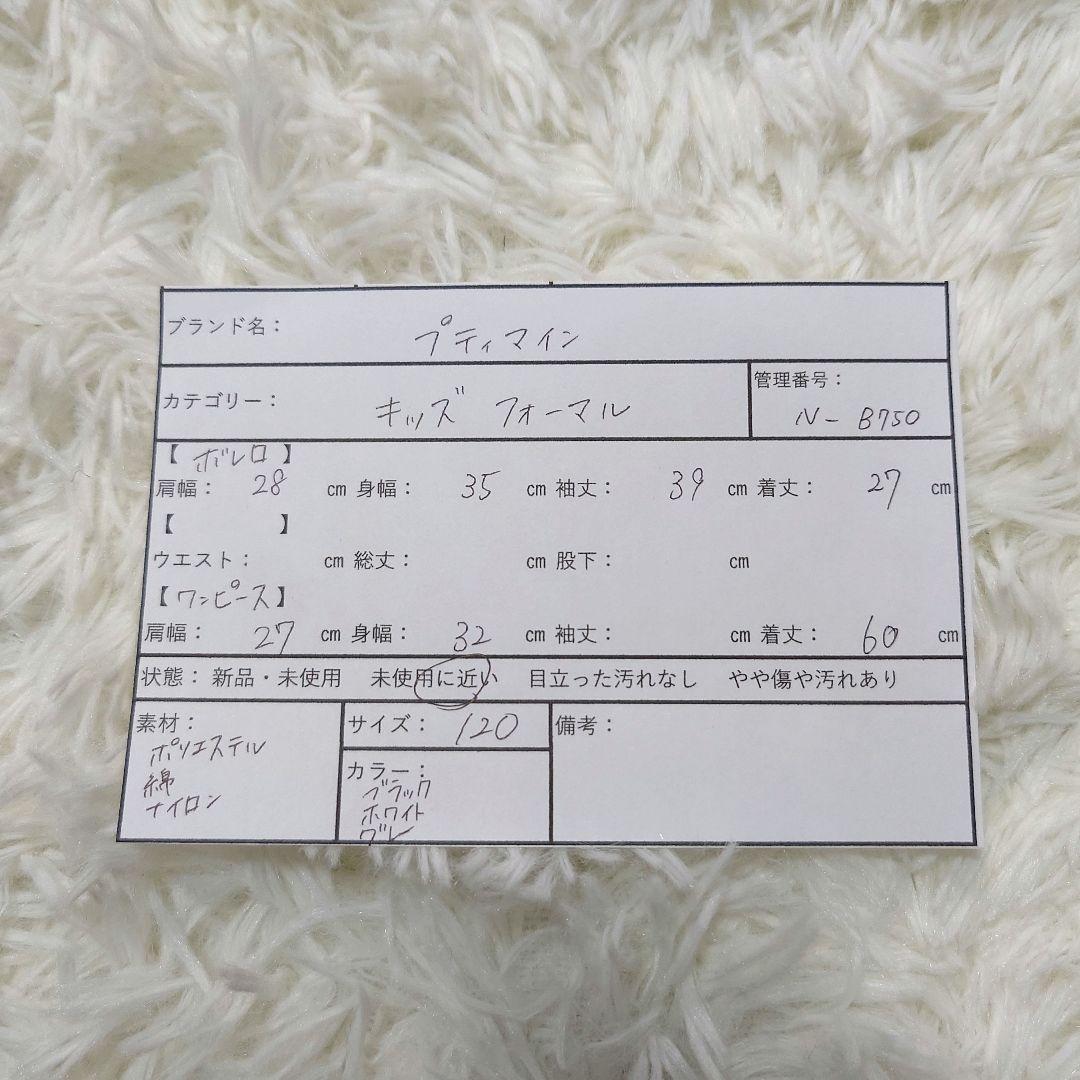 ブランド名： プティマイン
カテゴリー： キッズ フォーマル
管理番号：
N- B750
【 ボレロ 】
肩幅： 28 ㎝ 身幅： 35 ㎝ 袖丈： 39 ㎝ 着丈： 27 ㎝
【 】
ウエスト： ㎝ 総丈： ㎝ 股下： ㎝
【 ワンピース 】
肩幅： 27 ㎝ 身幅： 32 ㎝ 袖丈： ㎝ 着丈： 60 ㎝
状態： 新品・未使用 未使用に近い 目立った汚れなし やや傷や汚れあり
素材：
ポリエステル
綿
ナイロン
サイズ： 120
カラー：
ブラック
ホワイト
グレー
備考：